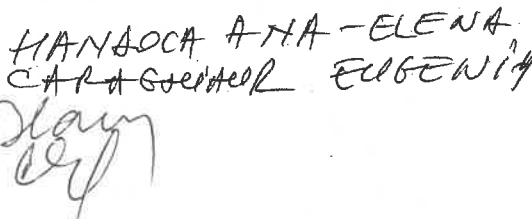 MANDOCA ANA-ELENA
CARAGHIAUR EUGENIA